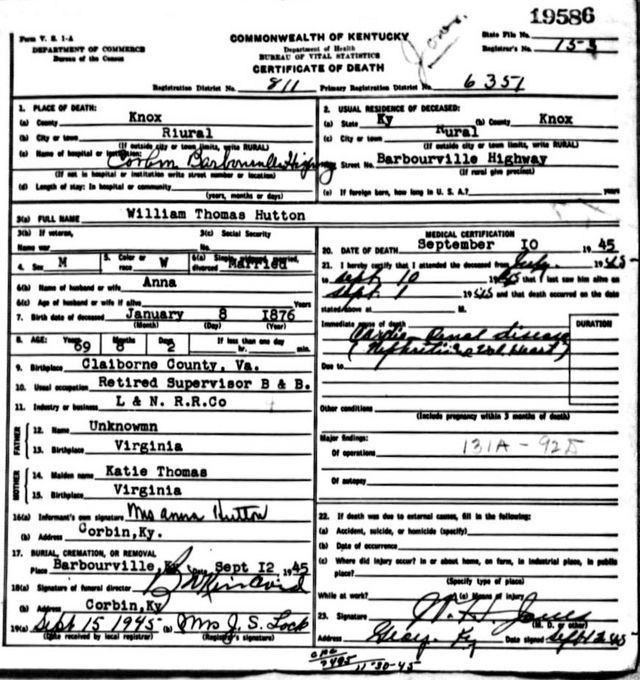 19586
Form V. S. 1-A
DEPARTMENT OF COMMERCE
Bureau of the Census
COMMONWEALTH OF KENTUCKY
Department of Health
BUREAU OF VITAL STATISTICS
CERTIFICATE OF DEATH
Jones.
State File No.
Registrar's No. 15-3
Registration District No. 811 Primary Registration District No. 6351
1. PLACE OF DEATH:
(a) County Knox
(b) City or town Riural
(If outside city or town limits, write RURAL)
(c) Name of hospital or institution: Corbin Barbourville Highway
(If not in hospital or institution write street number or location)
(d) Length of stay: In hospital or community
(years, months or days)
2. USUAL RESIDENCE OF DECEASED:
(a) State Ky (b) County Knox
(c) City or town Rural
(If outside city or town limits, write RURAL)
Street No. Barbourville Highway
(If rural give precinct)
(e) If foreign born, how long in U. S. A.? years
3(a) FULL NAME William Thomas Hutton
3(b) If veteran, Name war
3(c) Social Security No.
4. Sex M 5. Color or race W 6(a) Single, widowed, married, divorced Married
6(b) Name of husband or wife Anna
6(c) Age of husband or wife if alive Years
7. Birth date of deceased January 8 1876
(Month) (Day) (Year)
8. AGE: Years 69 Months 8 Days 2 If less than one day hr. min.
9. Birthplace Claiborne County, Va.
10. Usual occupation Retired Supervisor B & B.
11. Industry or business L & N. R.R.Co
FATHER
12. Name Unknowmn
13. Birthplace Virginia
MOTHER
14. Maiden name Katie Thomas
15. Birthplace Virginia
16(a) Informant's own signature Mrs Anna Hutton
(b) Address Corbin,Ky.
17. BURIAL, CREMATION, OR REMOVAL
Place Barbourville, Ky Date Sept 12 1945
18(a) Signature of funeral director
(b) Address Corbin,Ky
19(a) Sept 15 1945 (b) Mrs J. S. Lock
(Date received by local registrar) (Registrar's signature)
MEDICAL CERTIFICATION
20. DATE OF DEATH September 10 1945
21. I hereby certify that I attended the deceased from July 1945
to Sept 10 1945 that I last saw him alive on
Sept. 1 1945 and that death occurred on the date
stated above at M.
Immediate cause of death Cardio Renal disease
DURATION
Due to
Other conditions
(Include pregnancy within 3 months of death)
Major findings:
Of operations 131A - 92D
Of autopsy
22. If death was due to external causes, fill in the following:
(a) Accident, suicide, or homicide (specify)
(b) Date of occurrence
(c) Where did injury occur? In or about home, on farm, in industrial place, in public
place?
(Specify type of place)
While at work? (e) Means of injury
23. Signature W H Jones
(M. D. or other)
Address Ky Date signed Sept 12 45
11-30-45